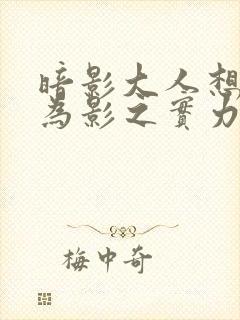 暗影大人想
為影之實力
梅中奇